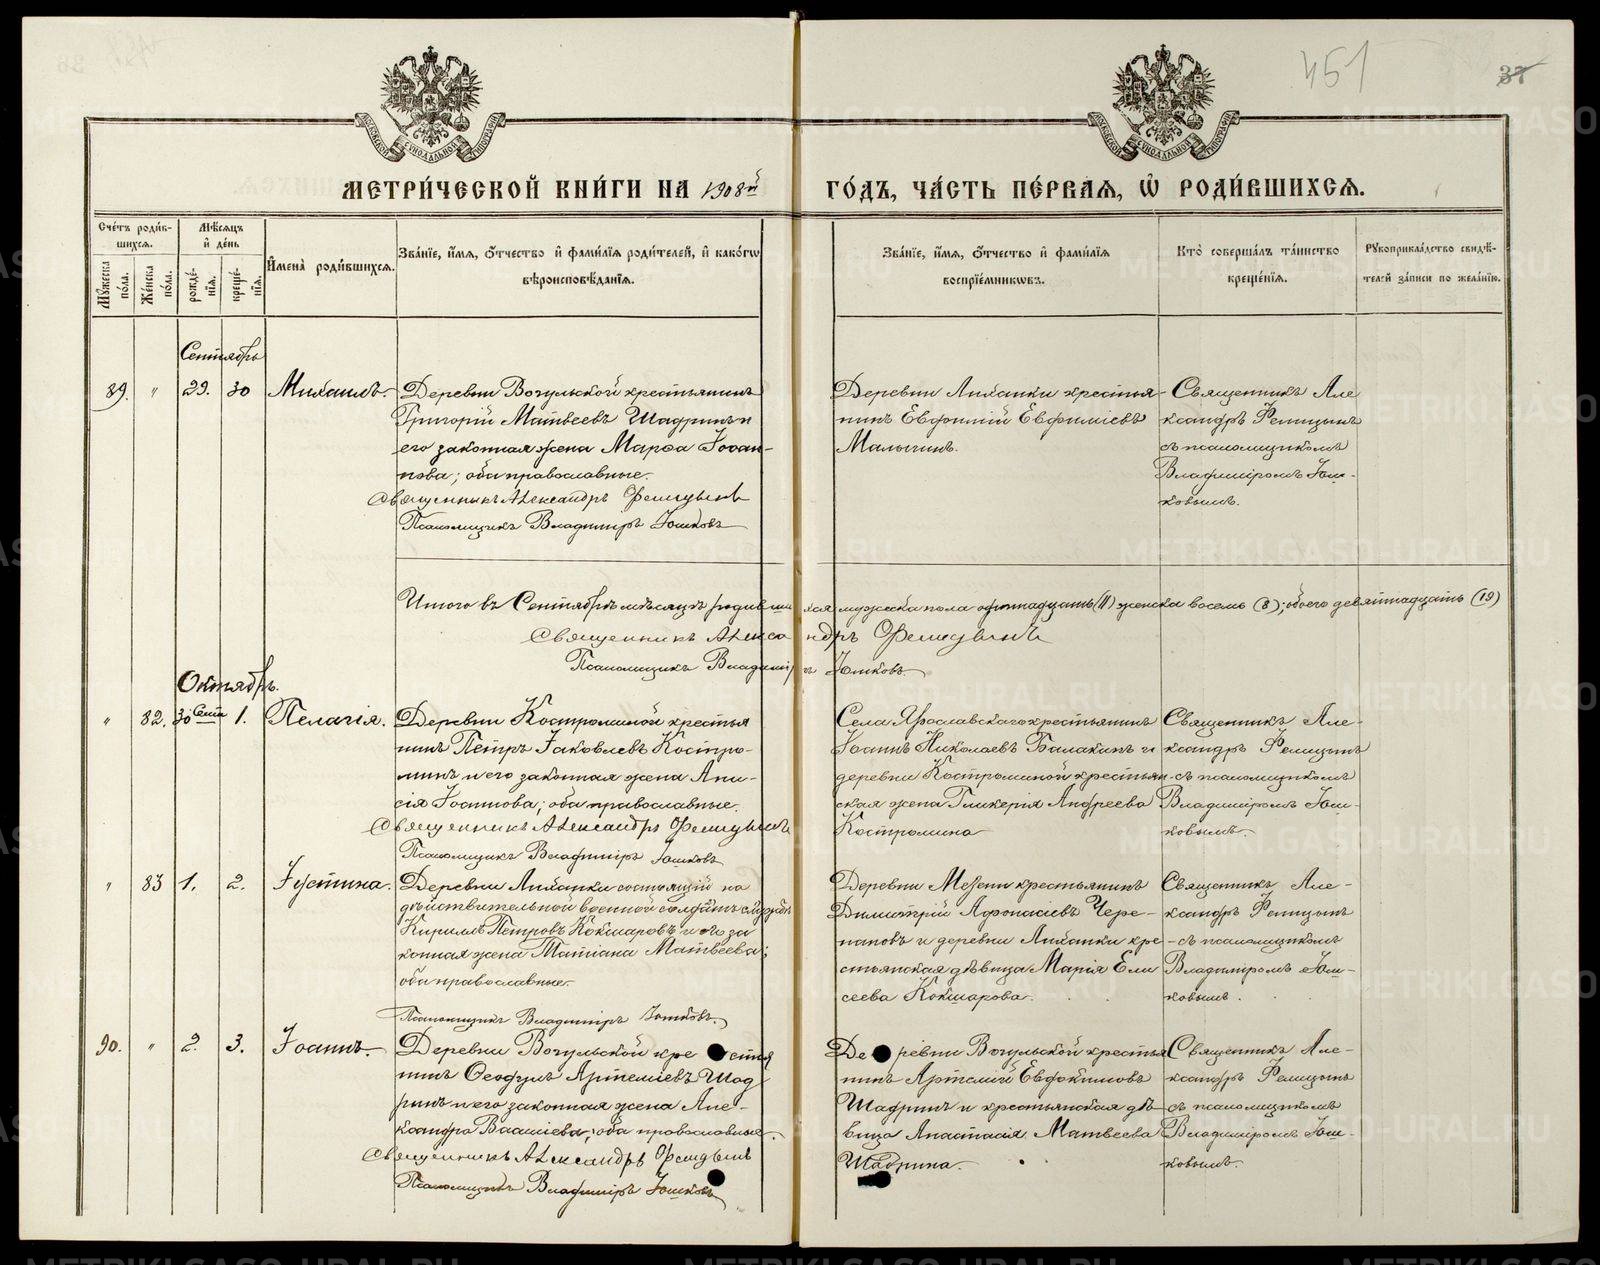 451 37
МОСКОВСКОЙ СѴНОДАЛЬНОЙ ТИПОГРАФІИ
МОСКОВСКОЙ СѴНОДАЛЬНОЙ ТИПОГРАФІИ
МЕТРИ́ЧЕСКОЙ КНИ́ГИ НА 1908й ГО́ДЪ, ЧА́СТЬ ПЕ́РВАЯ, Ѽ РОДИ́ВШИХСЯ.
Сче́тъ роди́в-
шихся.
Мꙋ́жеска
по́ла.
Же́нска
по́ла.
Мѣ́сяцъ
и҆ де́нь
рожде́-
нїя.
креще́-
нїя.
И҆мена̀ роди́вшихся.
Зва́нїе, и҆́мя, ѻ҆́тчество и҆ фами́лїя роди́телей, и҆ како́гѡ
вѣроисповѣ́данїя.
Зва́нїе, и҆́мя, ѻ҆́тчество и҆ фами́лїя
воспрїе́мникѡвъ.
Кто̀ соверша́лъ та́инство
креще́нїя.
Рꙋкоприкла́дство свидѣ́-
телей за́писи по жела́нїю.
Сентябрь
89. " 29. 30 Михаилъ.
Деревни Вогульской крестьянинъ
Григорій Матвеевъ Шадринъ и
его законная жена Марфа Іоан-
нова; оба православные.
Священникъ Александръ
Псаломщикъ Владиміръ Юшковъ
Деревни Лиханки крестья-
нинъ Евфимій Евфиміевъ
Малыгинъ.
Священникъ Але
ксандръ
съ псаломщикомъ
Владиміромъ Юш-
ковымъ.
Итого въ Сентябрѣ мѣсяцѣ родившихся мужеска пола одиннадцать (11) женска восемь (8); обоего девятнадцать (19)
Священникъ Александръ
Псаломщикъ Владиміръ Юшковъ
Октябрь.
" 82. 30 Сент 1. Пелагія.
Деревни Костроминой крестья
нинъ Петръ Іаковлевъ Костро-
минъ и его законная жена Ани-
сія Іоаннова; оба православные.
Священникъ Александръ
Псаломщикъ Владиміръ Юшковъ
Села Ярославскаго крестьянинъ
Іоаннъ Николаевъ Балакинъ и
деревни Костроминой крестьян-
ская жена Гликерія Андреева
Костромина
Священникъ Але-
ксандръ
съ псаломщикомъ
Владиміромъ Юш-
ковымъ.
" 83 1. 2. Іустина.
Деревни Лиханки состоящій на
дѣйствительной военной солдатъ службѣ
Кириллъ Петровъ Кокшаровъ и его за
конная жена Татіана Матвеева;
оба православные.
Псаломщикъ Владиміръ Юшковъ.
Деревни Мезени крестьянинъ
Димитрій Афонасіевъ Чере-
пановъ и деревни Лиханки кре
стьянская дѣвица Марія Ели
сеева Кокшарова.
Священникъ Але-
ксандръ
съ псаломщикомъ
Владиміромъ Юш-
ковымъ.
90. " 2. 3. Іоаннъ.
Деревни Вогульской кре стья
нинъ Феофилъ Артеміевъ Шад
ринъ и его законная жена Але-
ксандра Василіева; оба православные.
Священникъ Александръ
Псаломщикъ Владиміръ Юшковъ
Де ревни Вогульской крестья
нинъ Артемій Евдокимовъ
Шадринъ и крестьянская дѣ-
вица Анастасія Матвеева
Шадрина.
Священникъ Але-
ксандръ
съ псаломщикомъ
Владиміромъ Юш-
ковымъ.
METRIKI.GASO-URAL.RU